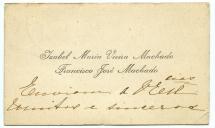 Izabel Maria Vieira Machado
Francisco José Machado
Enviam a V. Ex.cias
muitos e sinceros